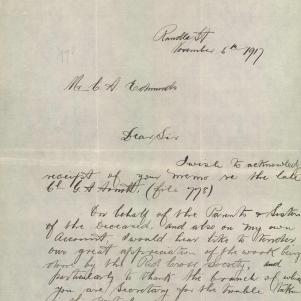 Randle St
November 6th 1917
Mr C A Edmunds
Dear Sir
I wish to acknowled
receipt of your memo re the late
G A (file 778)
On behalf of the Parents & Sisters
of the Deceased, and also on my own
account, I would hear like to tender
our great appreciation of the work being
done by the Red Cross Society, and
particularly to thank the branch of wh
you are Secretary for the trouble taken